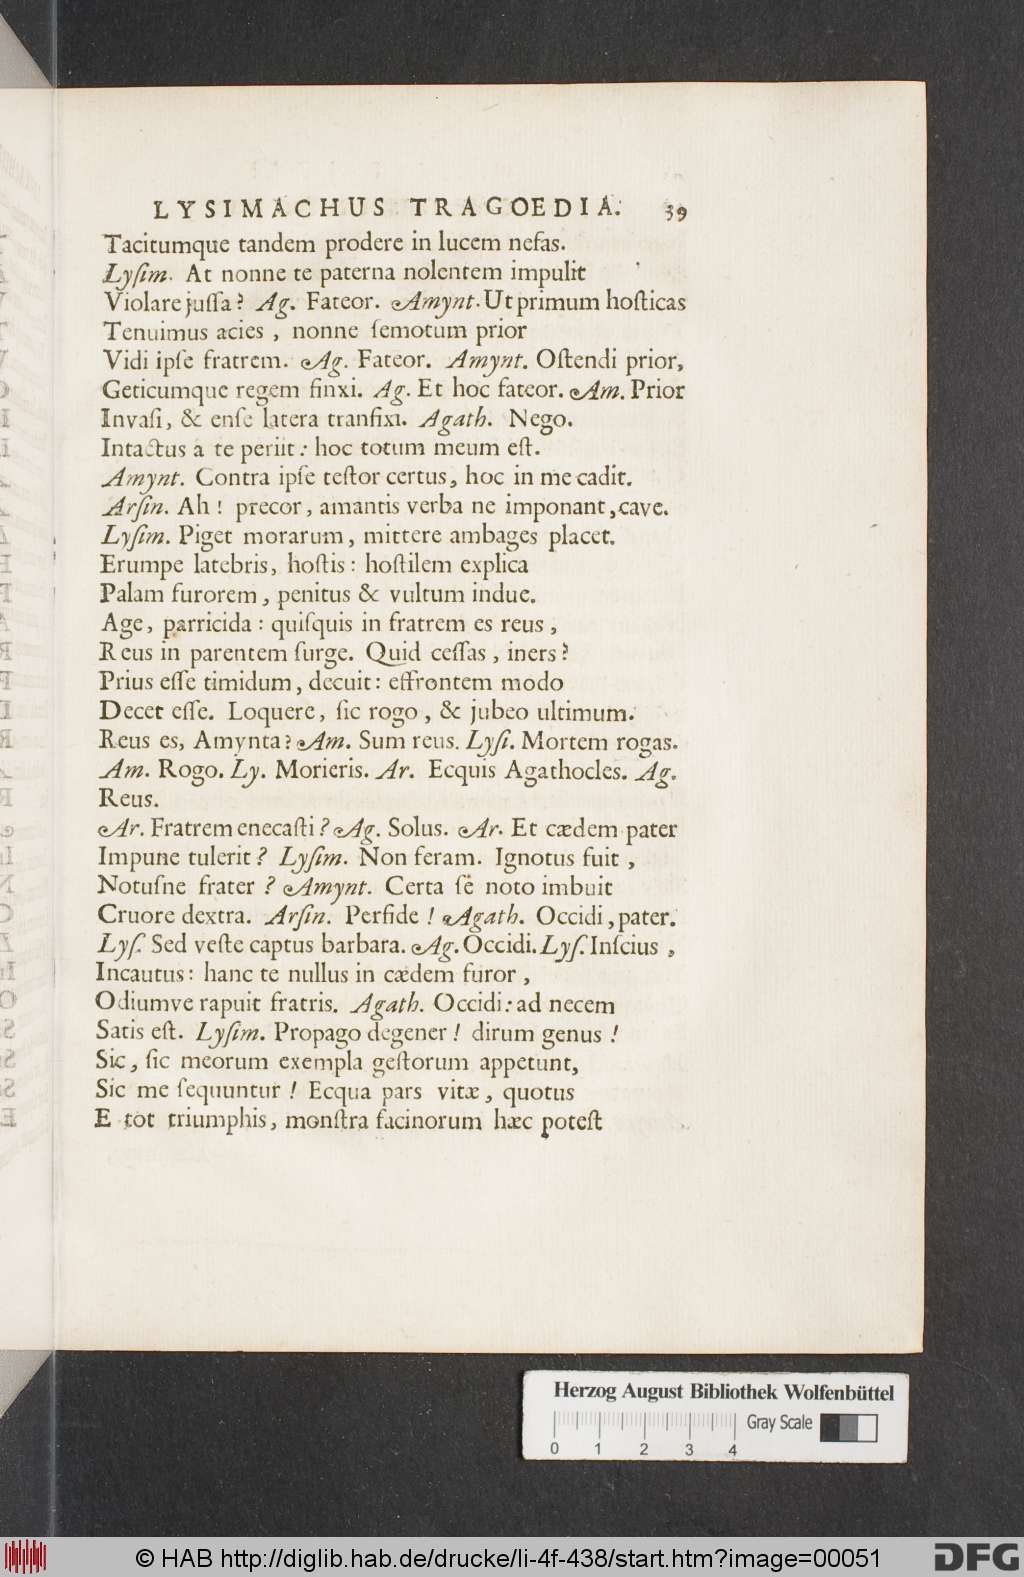 LYSIMACHUS TRAGOEDIA. 39
Tacitumque tandem prodere in lucem nefas.
Lyſim. At nonne te paterna nolentem impulit
Violare juſſa? Ag. Fateor. Amynt. Ut primum hoſticas
Tenuimus acies, nonne ſemotum prior
Vidi ipſe fratrem. Ag. Fateor. Amynt. Oſtendi prior,
Geticumque regem finxi. Ag. Et hoc fateor. Am. Prior
Invaſi, & enſe latera tranfixi. Agath. Nego.
Intactus a te periit: hoc totum meum eſt.
Amynt. Contra ipſe teſtor certus, hoc in me cadit.
Arſin. Ah! precor, amantis verba ne imponant, cave.
Lyſim. Piget morarum, mittere ambages placet.
Erumpe latebris, hoſtis: hoſtilem explica
Palam furorem, penitus & vultum indue.
Age, parricida: quiſquis in fratrem es reus,
Reus in parentem ſurge. Quid ceſſas, iners?
Prius eſſe timidum, decuit: effrontem modo
Decet eſſe. Loquere, ſic rogo, & jubeo ultimum.
Reus es, Amynta? Am. Sum reus. Lyſi. Mortem rogas.
Am. Rogo. Ly. Morieris. Ar. Ecquis Agathocles. Ag.
Reus.
Ar. Fratrem enecaſti? Ag. Solus. Ar. Et cædem pater
Impune tulerit? Lyſim. Non feram. Ignotus fuit,
Notuſne frater? Amynt. Certa ſe noto imbuit
Cruore dextra. Arſin. Perfide! Agath. Occidi, pater.
Lyſ. Sed veſte captus barbara. Ag. Occidi. Lyſ. Inſcius,
Incautus: hanc te nullus in cædem furor,
Odiumve rapuit fratris. Agath. Occidi: ad necem
Satis eſt. Lyſim. Propago degener! dirum genus!
Sic, ſic meorum exempla geſtorum appetunt,
Sic me ſequuntur! Ecqua pars vitæ, quotus
E tot triumphis, monſtra facinorum hæc poteſt
Herzog August Bibliothek Wolfenbüttel
Gray Scale
0 1 2 3 4
© HAB http://diglib.hab.de/drucke/li-4f-438/start.htm?image=00051
DFG